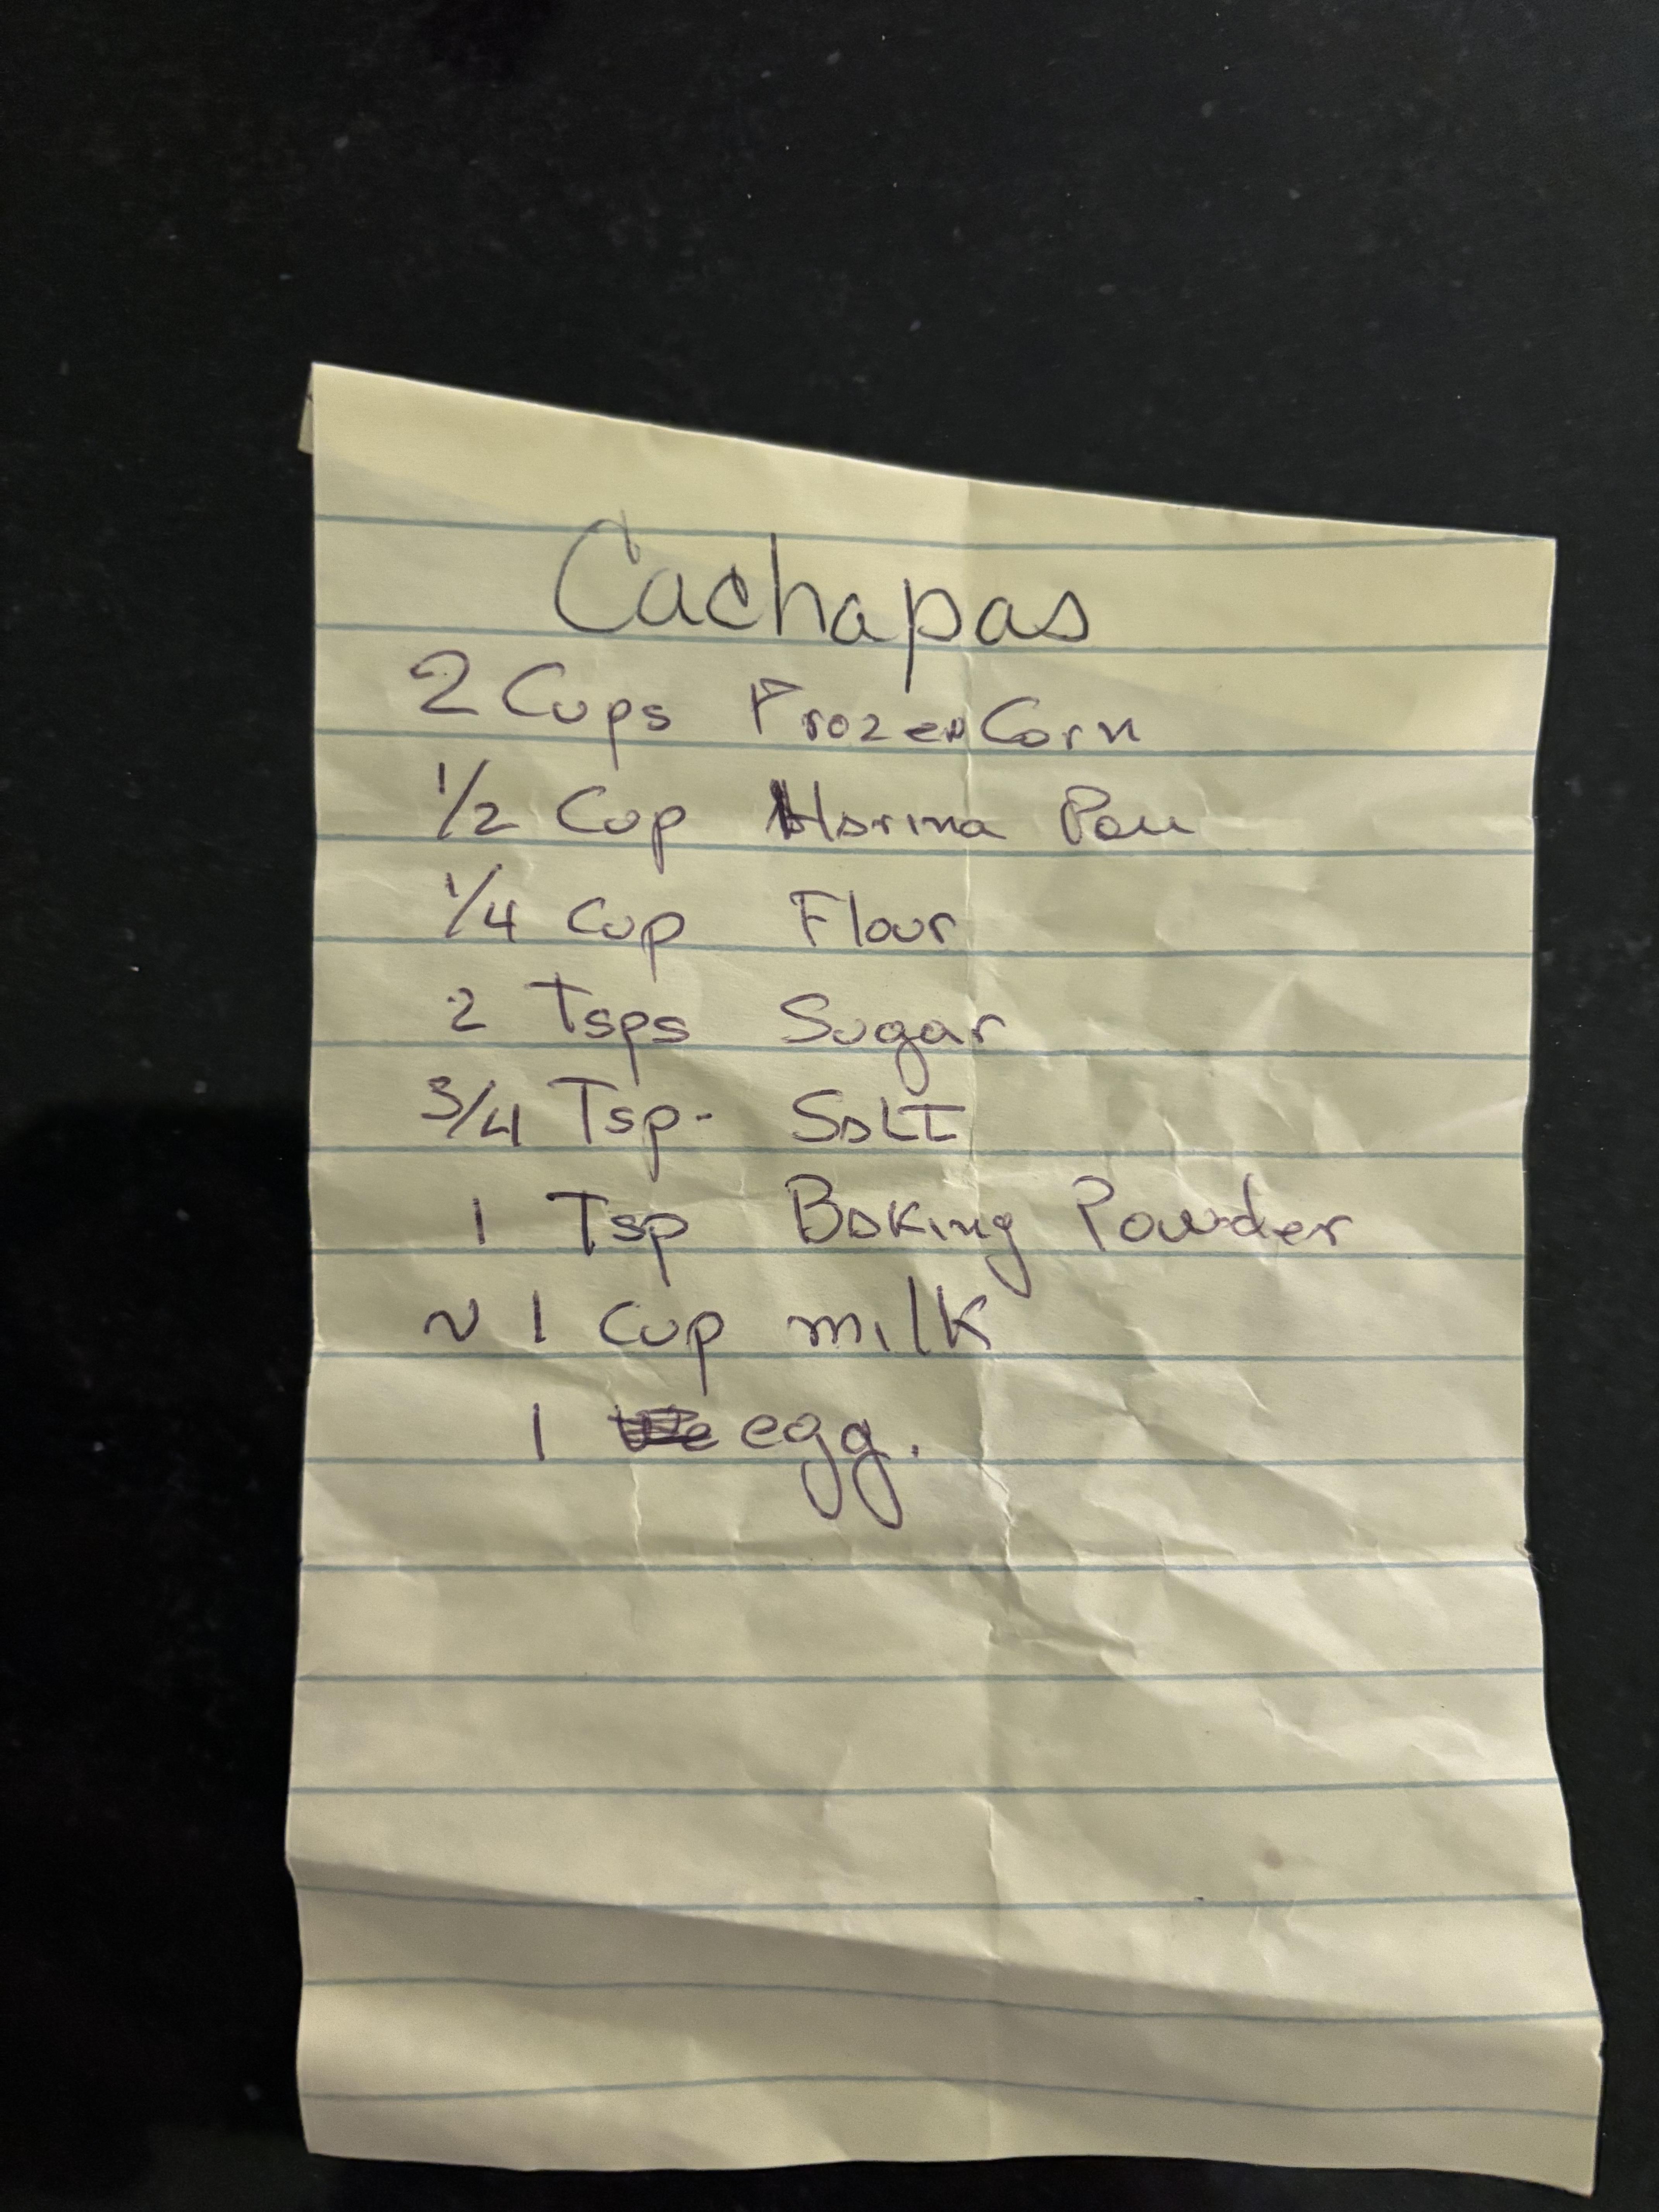 Cachapas
2 Cups Frozen Corn
1/2 Cup Harina Pan
1/4 Cup Flour
2 Tsps Sugar
3/4 Tsp- Salt
1 Tsp Baking Powder
~ 1 Cup milk
1 egg.